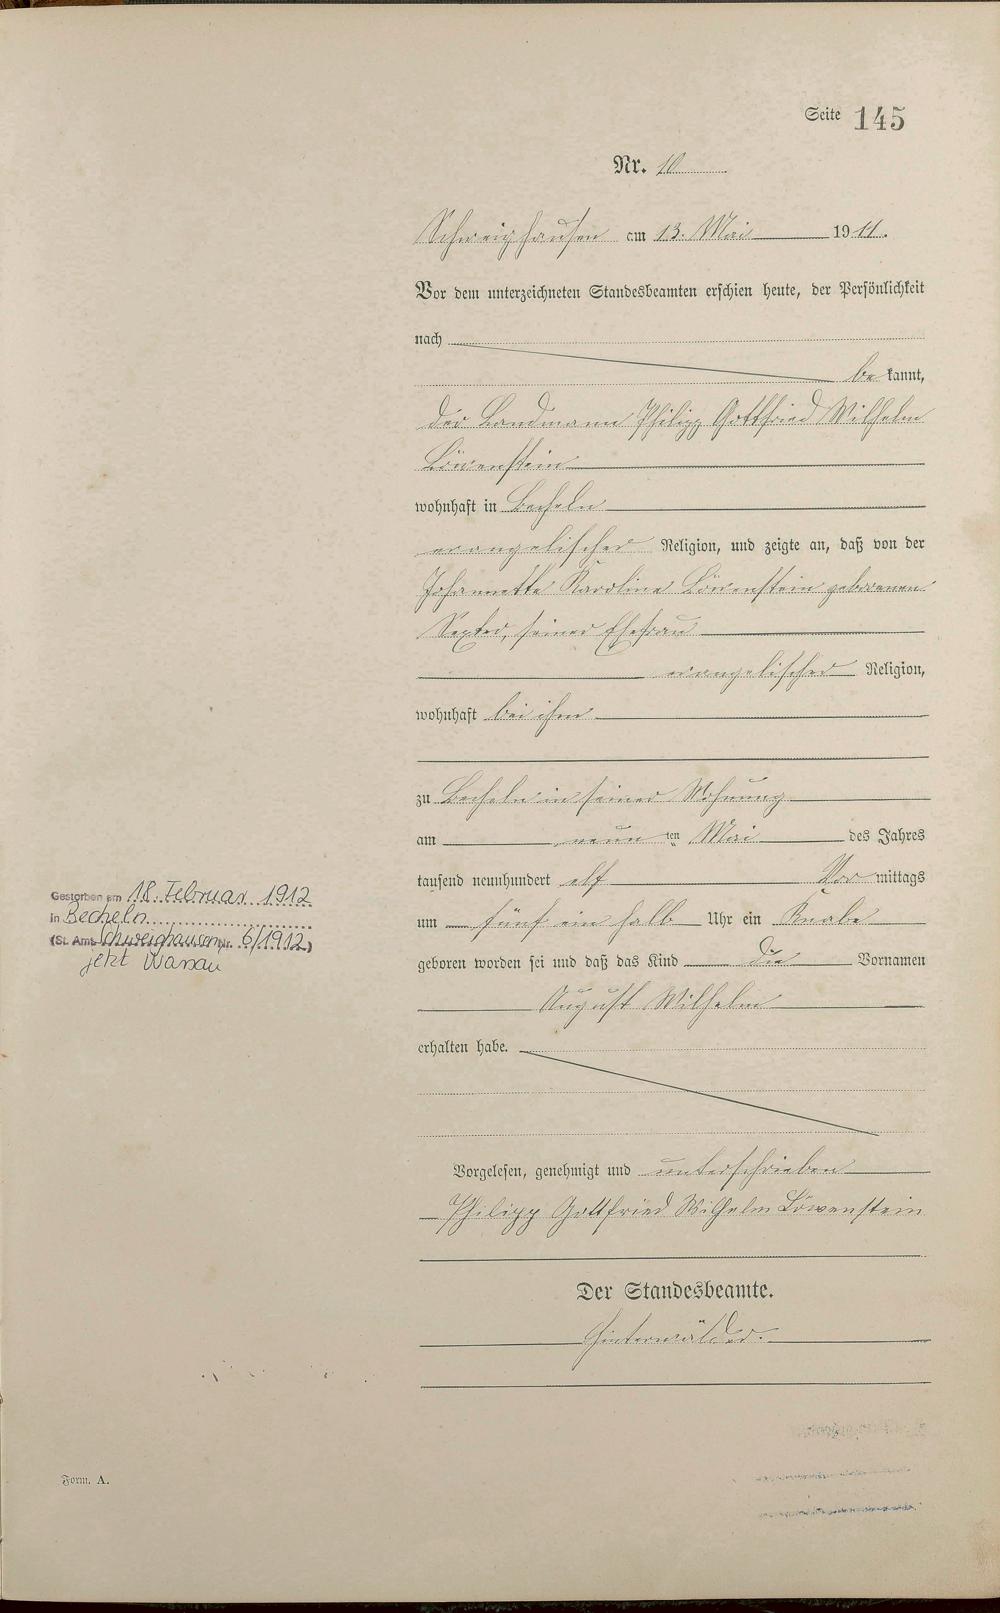 Seite 145
Nr. 10
Schweighausen am 13. Mai 1911.
Vor dem unterzeichneten Standesbeamten erschien heute, der Persönlichkeit
nach
be kannt,
der Landmann Philipp Gottfried Wilhelm
Löwenstein
wohnhaft in Becheln
evangelischer Religion, und zeigte an, daß von der
Johannette Karoline Löwenstein geborenen
seiner Ehefrau
evangelischer Religion,
wohnhaft bei ihm
zu Becheln in seiner Wohnung
am neun ten Mai des Jahres
tausend neunhundert elf Vor mittags
um fünf ein halb Uhr ein Knabe
geboren worden sei und daß das Kind die Vornamen
August Wilhelm
erhalten habe.
Vorgelesen, genehmigt und unterschrieben
Philipp Gottfried Wilhelm Löwenstein
Der Standesbeamte.
Hinterwälder.
Gestorben am 18. Februar 1912
in Becheln
(St. Amt Schweighausen Nr. 6/1912)
jetzt Nassau
Form. A.